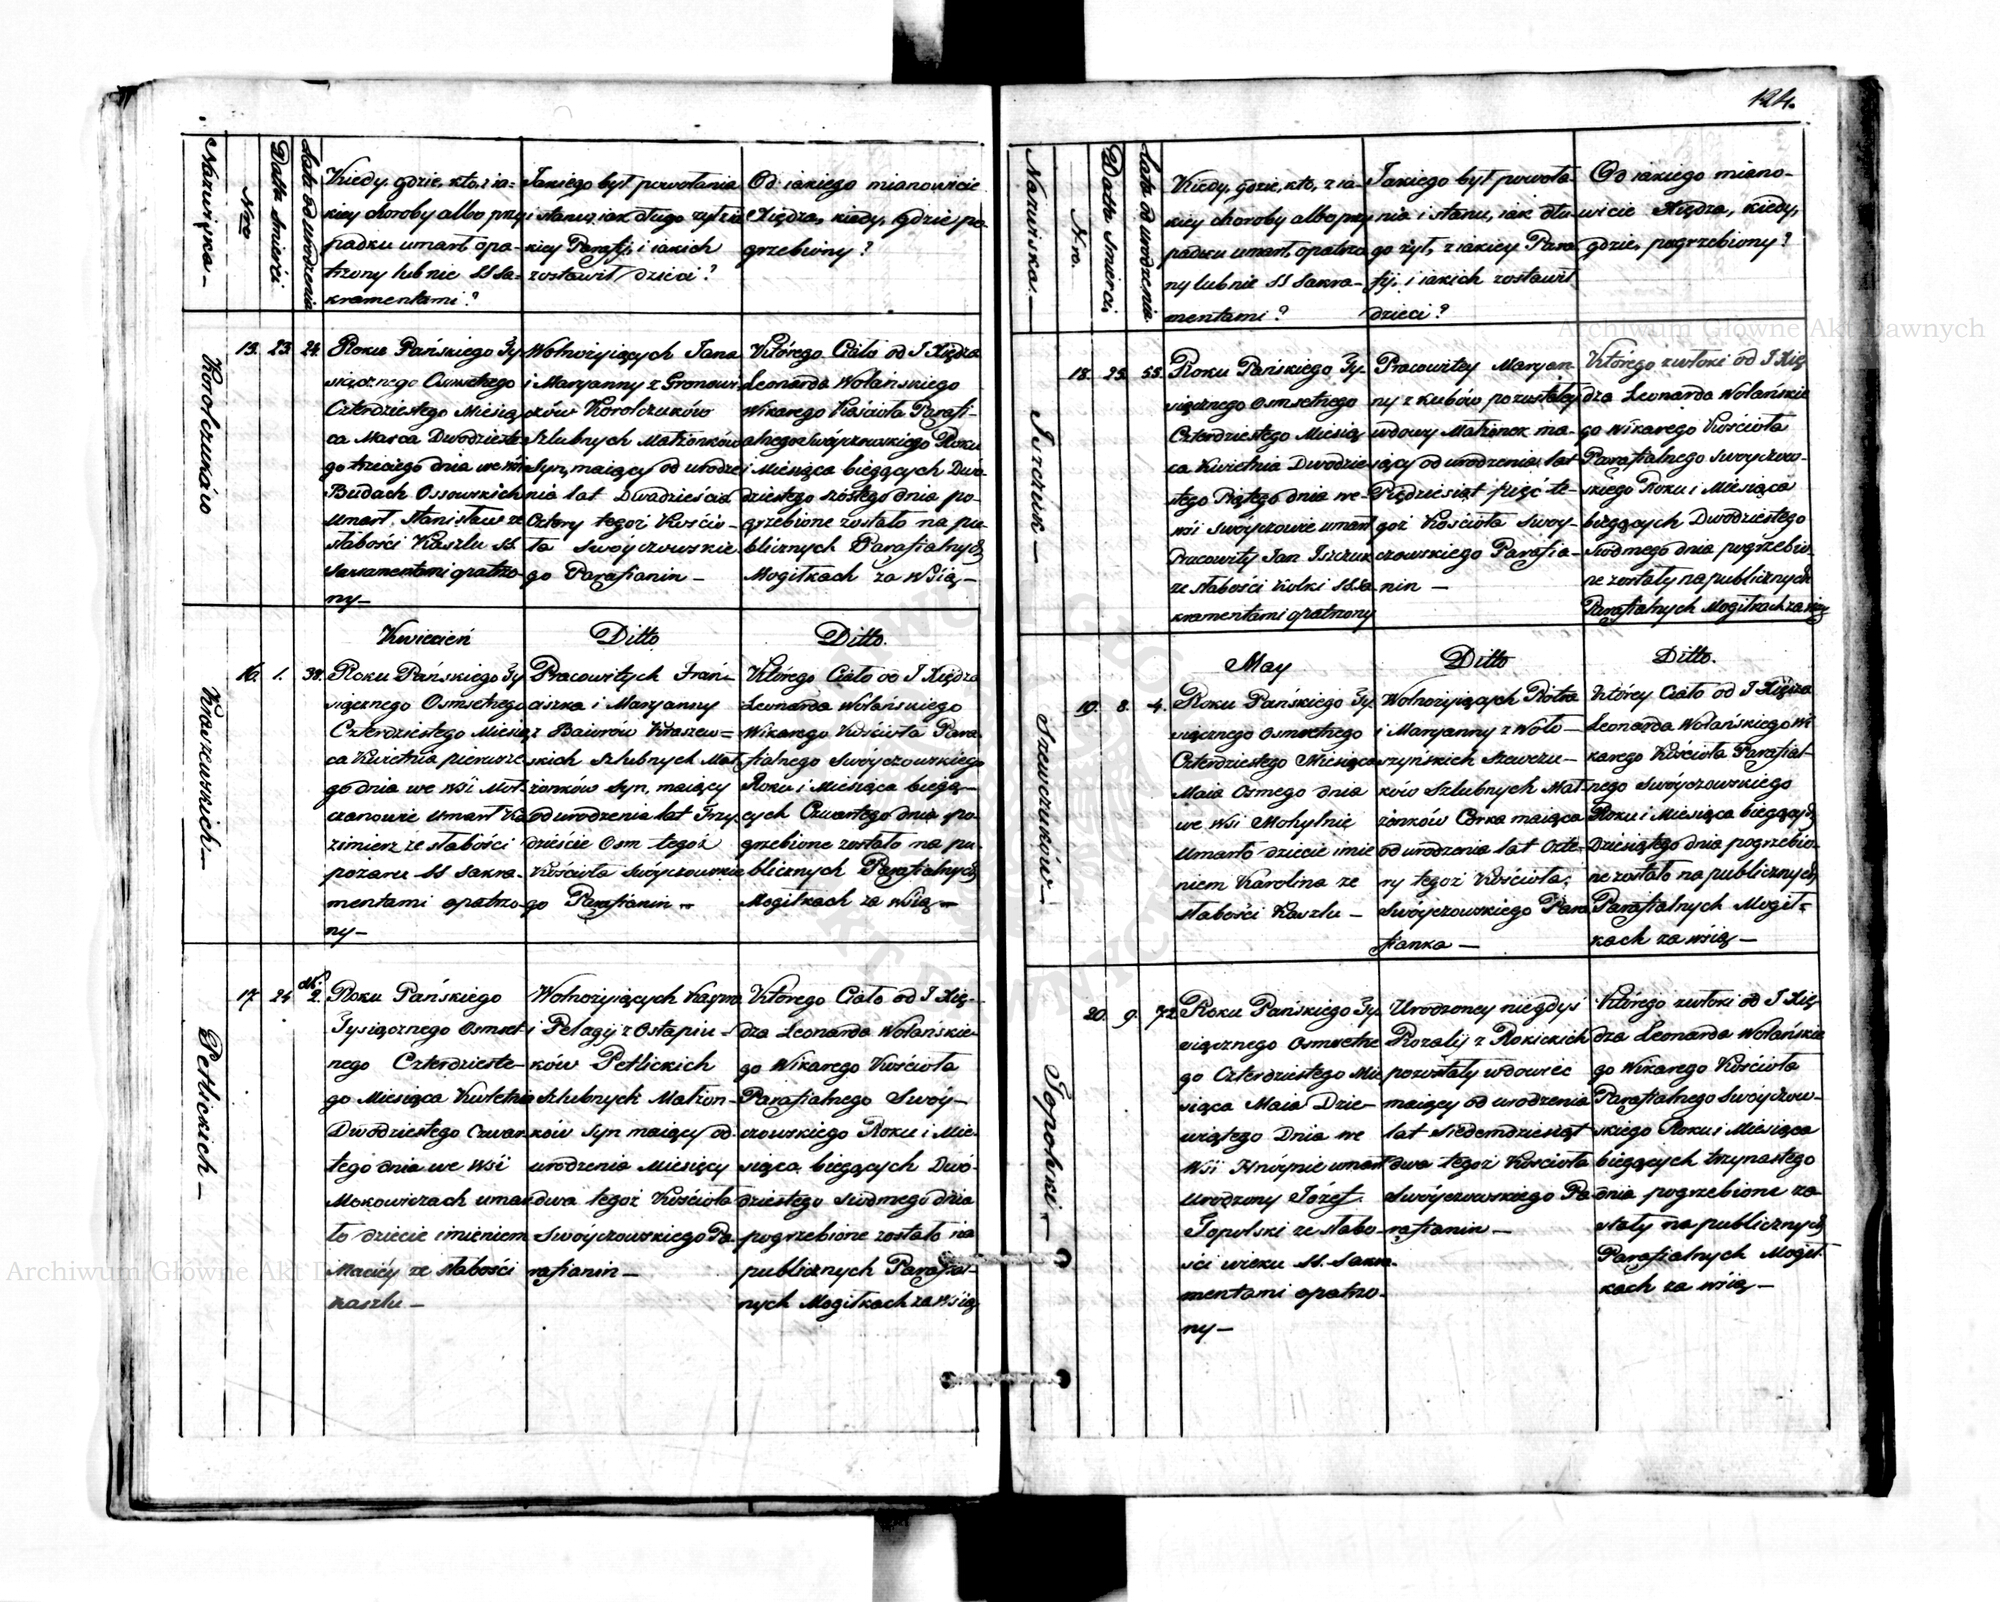 124.
Nazwiska —
Nro
Datta śmierci
Lata od urodzenia
Kiedy, gdzie, kto, z ia-
kiey choroby albo przy
padku umarł, opa-
trzony lub nie SS Sa-
kramentami?
Jakiego był powołania
i stanu, iak długo żył, z ia
kiey Parafji, i iakich
zostawił dzieci?
Od iakiego mianowicie
Xiędza, kiedy, gdzie po-
grzebiony?
Korolczuków
15. 23. 24.
Roku Pańskiego Ty
siącznego Osmsetnego
Czterdziestego Miesią
ca Marca Dwudzieste
go trzeciego dnia we wsi
Budach Ossowskich
umarł Stanisław ze
słabości Kaszlu SS.
Sakramentami opatrzo-
ny —
Wolnożyiących Jana
i Maryanny z Gronowi
czów Korolczuków
Szlubnych Małżonków
Syn, maiący od urodze
nia lat Dwadzieścia
Cztery tegoż Kościo-
ła Swóyczowskie
go Parafianin —
Którego Ciało od J Xiędza
Leonarda Wolańskiego
Wikarego Kościoła Parafi-
alnego Swóyczowskiego Roku
i Miesiąca bieżących Dwu
dziestego szóstego dnia po-
grzebione zostało na pu-
blicznych Parafialnych
Mogiłkach za Wsią —
Kwiecień Ditto Ditto.
Kraszewskich —
16. 1. 38.
Roku Pańskiego Ty
siącznego Osmsetnego
Czterdziestego Miesią
ca Kwietnia pierwsze
go dnia we Wsi Moł
czanowie umarł Ka
zimierz ze słabości
pożaru SS Sakra-
mentami opatrzo-
ny —
Pracowitych Fran-
ciszka i Maryanny
z Baiurów Kraszew=
skich Szlubnych Mał
żonków Syn, maiący
od urodzenia lat Trzy
dzieście Osm tegoż
Kościoła Swóyczowskie
go Parafianin —
Którego Ciało od J Xiędza
Leonarda Wolańskiego
Wikarego Kościoła Para
fialnego Swóyczowskiego
Roku i Miesiąca bieżą-
cych Czwartego dnia po-
grzebione zostało na pu-
blicznych Parafialnych
Mogiłkach za Wsią —
Petlickich —
17 24 2.
Roku Pańskiego
Tysiącznego Osmset
nego Czterdzieste-
go Miesiąca Kwietnia
Dwudziestego Czwar
tego dnia we Wsi
Mokowiczach umar
ło dziecie imieniem
Maciey ze słabości
Kaszlu —
Wolnożyiących
i Pelagij z Ostapiu-
ków Petlickich
Szlubnych Małżon-
ków Syn maiący od
urodzenia Miesięcy
dwa tegoż Kościoła
Swóyczowskiego Pa-
rafianin —
Którego Ciało od J Xię-
dza Leonarda Wolańskie-
go Wikarego Kościoła
Parafialnego Swóy-
czowskiego Roku i Mie-
siąca bieżących Dwu-
dziestego siódmego dnia
pogrzebione zostało na
publicznych Parafial-
nych Mogiłkach za Wsią
Nazwiska —
Nro.
Datta śmierci
Lata od urodzenia.
Kiedy, gdzie, kto, z ia
kiey choroby albo przy
padku umarł, opatrzo
ny lub nie SS Sakra-
mentami?
Jakiego był powoła-
nia i stanu, iak dłu
go żył, z iakiey Para
fji, i iakich zostawił
dzieci?
Od iakiego miano-
wicie Xiędza, kiedy,
gdzie, pogrzebiony?
18. 25. 55.
Roku Pańskiego Ty-
siącznego Osmsetnego
Czterdziestego Miesią
ca Kwietnia Dwudzie
stego Piątego dnia we
wsi Swóyczowie umarł
Pracowity Jan
ze słabości Kolki SS Sa
kramentami opatrzony
Pracowitey Maryan-
ny z Kubów pozostałey
wdowy Małżonek ma-
iący od urodzenia lat
Pięćdziesiąt pięć te-
goż Kościoła Swoy-
czowskiego Parafia-
nin —
Którego zwłoki od J Xię
dza Leonarda Wolańskie
go Wikarego Kościoła
Parafialnego Swoyczow-
skiego Roku i Miesiąca
bieżących Dwudziestego
siódmego dnia pogrzebio-
ne zostały na publicznych
Parafialnych Mogiłkach za wsią
May Ditto Ditto.
Szewczuków —
19. 8. 4.
Roku Pańskiego Ty
siącznego Osmsetnego
Czterdziestego Miesiąca
Maia Osmego dnia
we wsi Mohylnie
umarło dziecie imie
niem Karolina ze
słabości Kaszlu —
Wolnożyiących Piotra
i Maryanny z Woło-
szyńskich Szewczu-
ków Szlubnych Mał-
żonków Córka maiąca
od urodzenia lat Czte-
ry tegoż Kościoła
Swóyczowskiego Para
fianka —
Którey Ciało od J Xiędza
Leonarda Wolańskiego Wi
karego Kościoła Parafial-
nego Swóyczowskiego
Roku i Miesiąca bieżących
Dziesiątego dnia pogrzebio-
ne zostało na publicznych
Parafialnych Mogił=
kach za wsią —
Topolski —
20. 9. 72
Roku Pańskiego Ty
siącznego Osmsetne
go Czterdziestego Mie
siąca Maia Dzie-
wiątego Dnia we
Wsi Hnóynie umarł
Urodzony Józef
Topolski ze słabo-
ści wieku SS. Sakra-
mentami opatrzo-
ny —
Urodzoney niegdyś
Rozalij z Rokickich
pozostały wdowiec
maiący od urodzenia
lat siedemdziesiąt
dwa tegoż Kościoła
Swóyczowskiego Pa
rafianin —
Którego zwłoki od J Xię
dza Leonarda Wolańskie
go Wikarego Kościoła
Parafialnego Swóyczow-
skiego Roku i Miesiąca
bieżących trzynastego
dnia pogrzebione zo-
stały na publicznych
Parafialnych Mogił
kach za wsią —
Archiwum Główne Akt Dawnych
Archiwum Główne Akt D